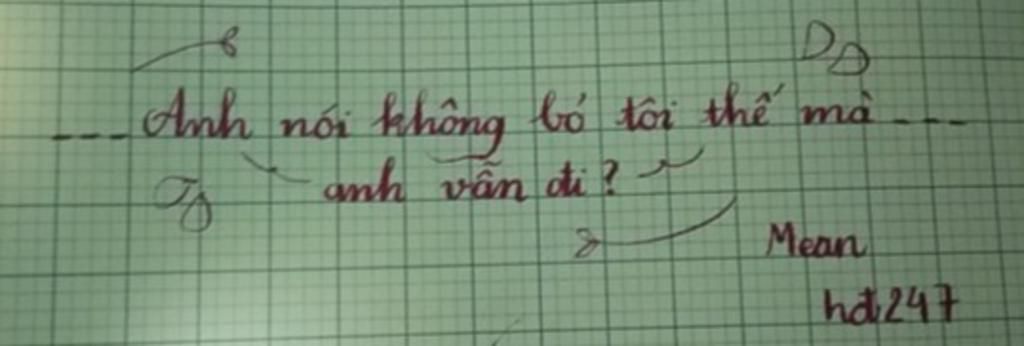 ---Anh nói không bỏ tôi thế mà---
anh vẫn đi?
Mean
hdt247